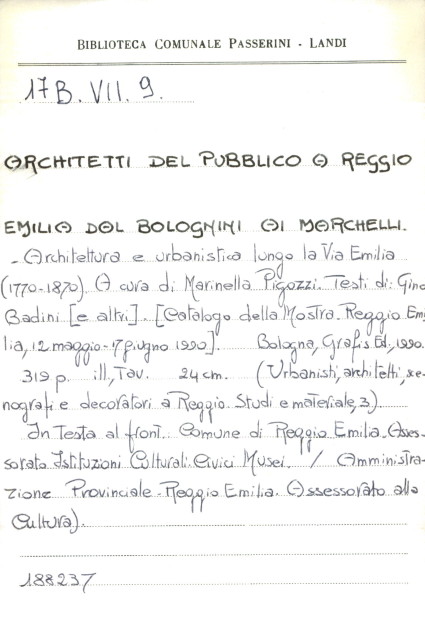 BIBLIOTECA COMUNALE PASSERINI - LANDI
17B. VII. 9.
ARCHITETTI DEL PUBBLICO A REGGIO
EMILIA DAL BOLOGNINI AI MARCHELLI.
- Architettura e urbanistica lungo la Via Emilia
(1770-1870). A cura di Marinella Pigozzi. Testi di: Gino
Badini [e altri]. [Catalogo della Mostra. Reggio Emi
lia, 12 maggio - 17 giugno 1990]. Bologna, Grafis Ed., 1990.
319 p. ill., Tav. 24 cm. (Urbanisti, architetti, sce-
nografi e decoratori a Reggio. Studi e materiale, 3).
In testa al front.: Comune di Reggio Emilia. Asses-
sorato Istituzioni Culturali. Civici Musei. / Amministra-
zione Provinciale - Reggio Emilia. Assessorato alla
Cultura).
188237